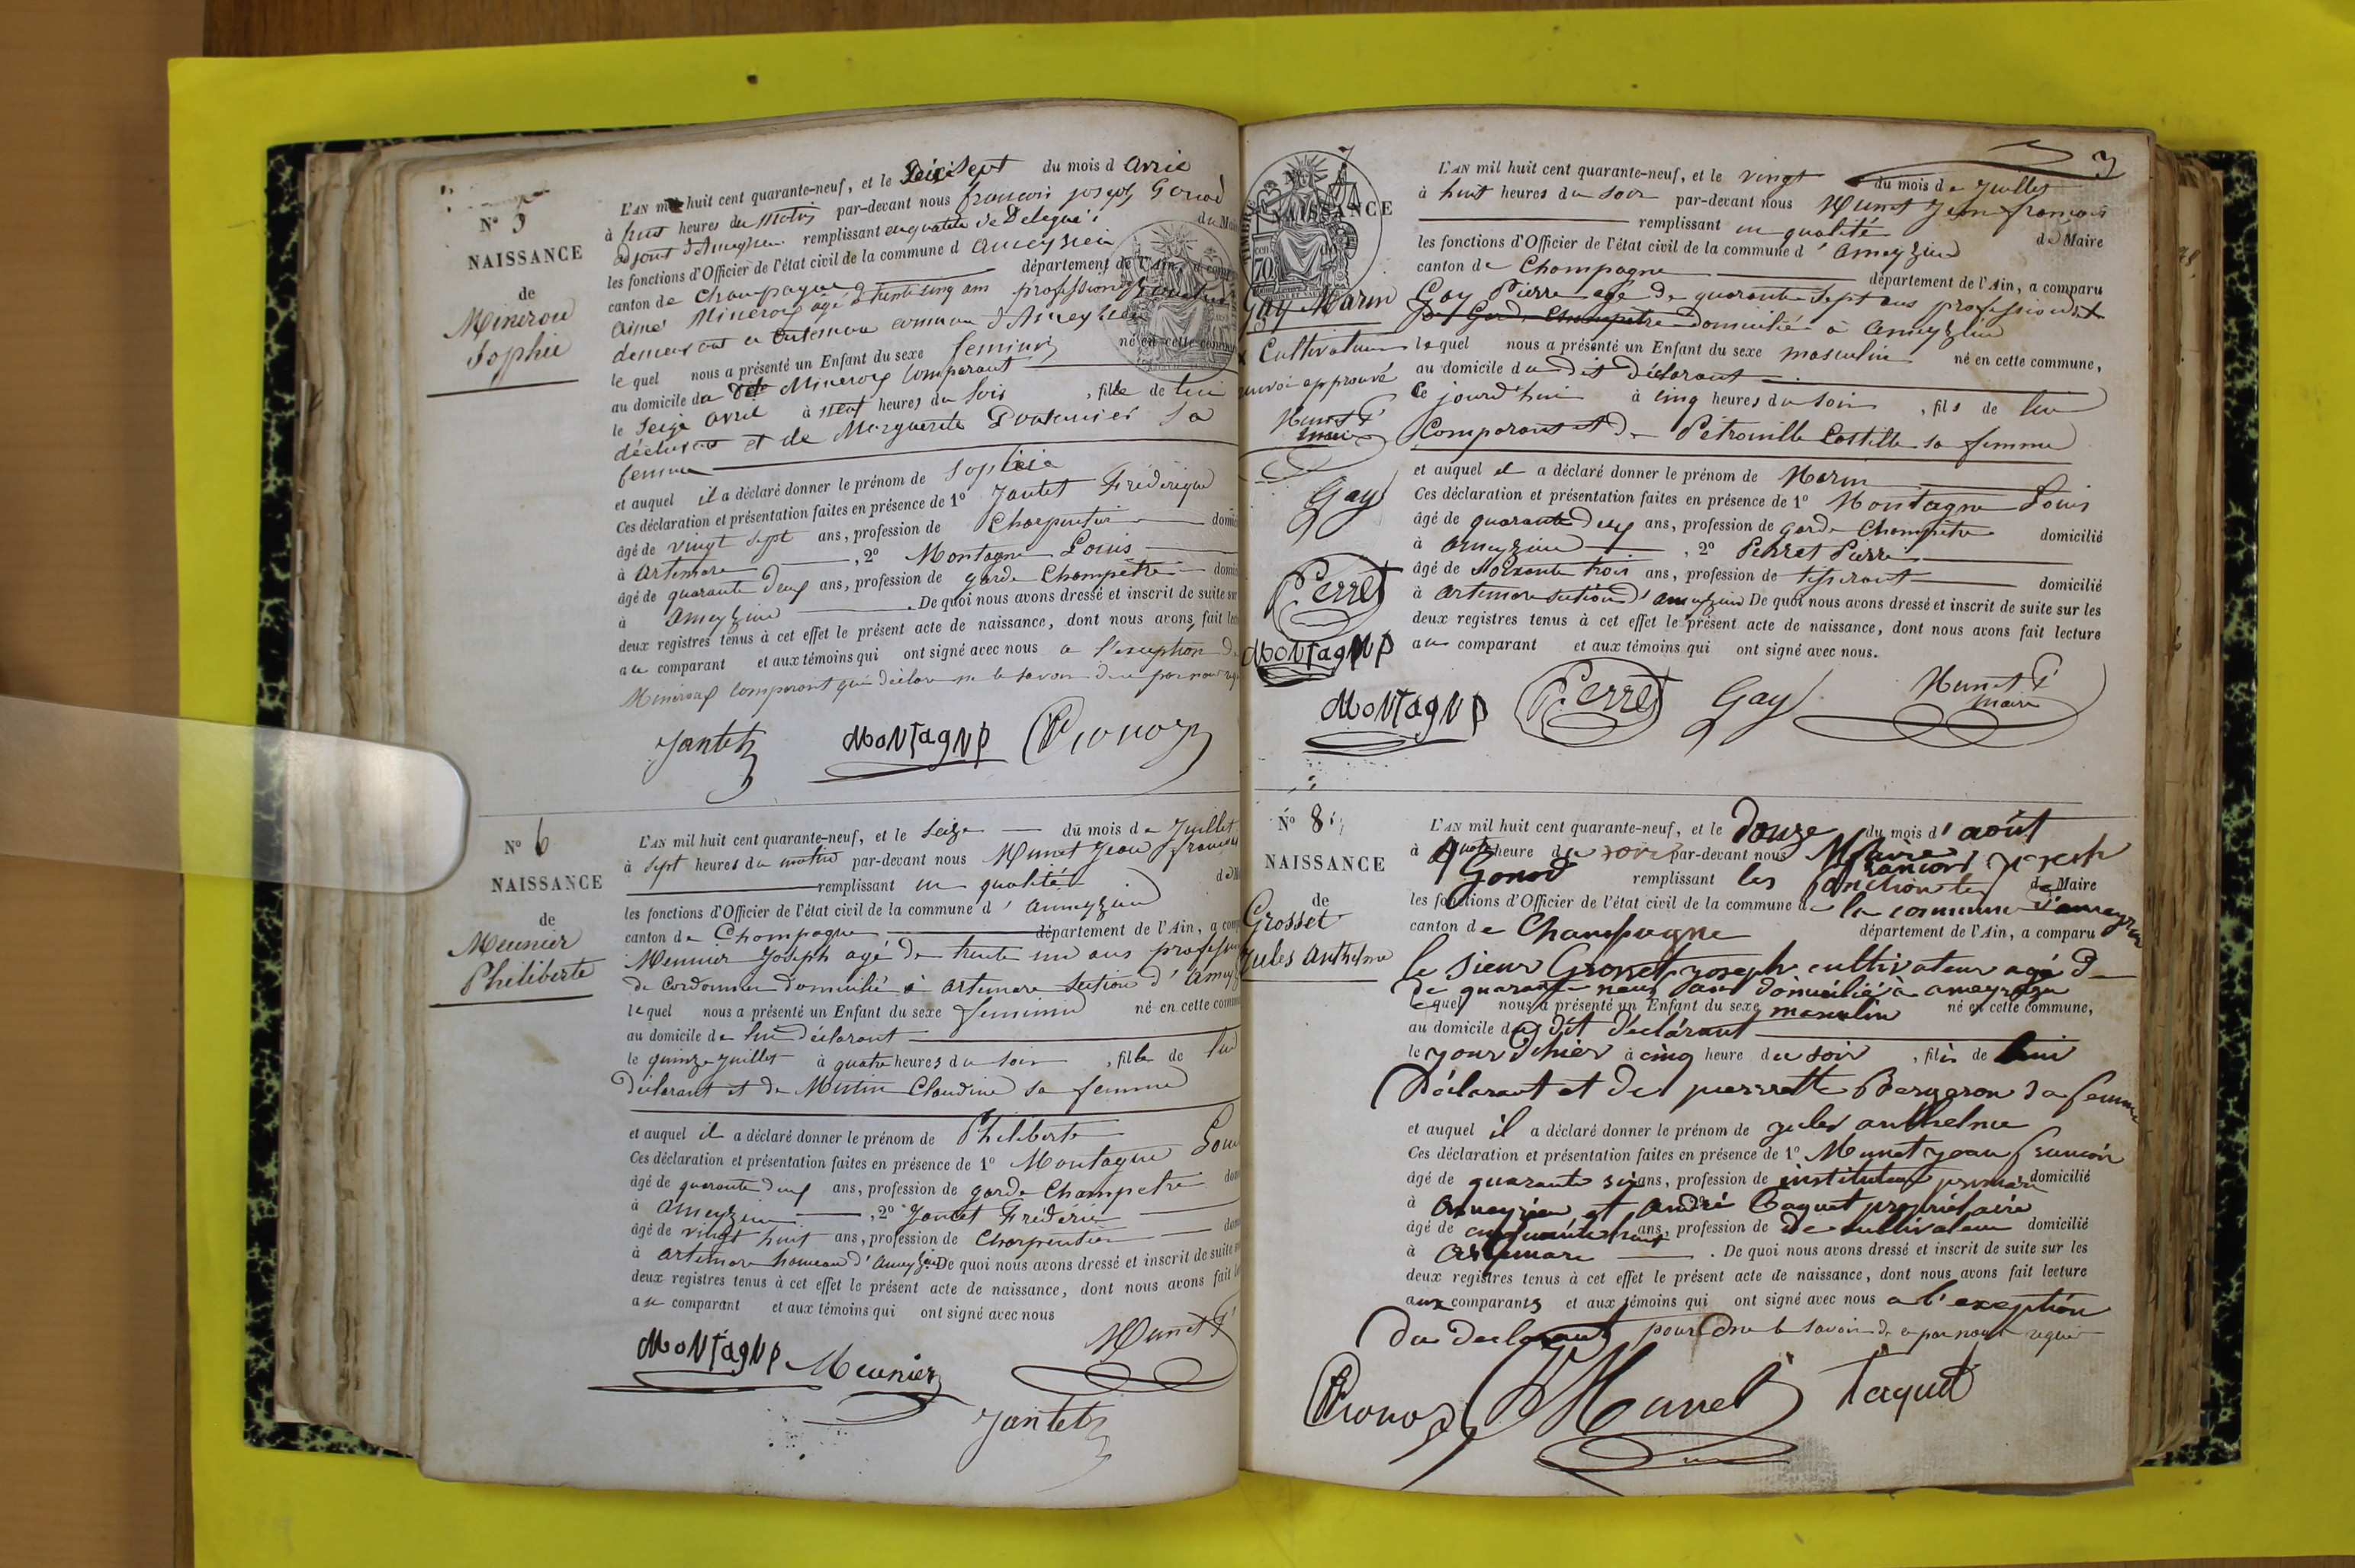 N° 5
NAISSANCE
de
Mineroud
Sophie
L'AN mil huit cent quarante-neuf, et le Dix Sept du mois d avril
à huit heures du Matin par-devant nous francois joseph Gonod
adjoint d'Ameyzieu remplissant en qualité de Délégué du Ma
les fonctions d'Officier de l'état civil de la commune d ameyzieu
canton de Champagne département de l'Ain, a comp
aimé Mineroy agé d trente cinq ans profession
demeurant a artemare commune d'Ameyzieu
le quel nous a présenté un Enfant du sexe feminin né en cette commune
au domicile du dit Mineroy Comparant
le Seize avril à neuf heures du Soir , fille de lui
déclarant et de Marguerite Sa
femme
et auquel il a déclaré donner le prénom de Sophie
Ces déclaration et présentation faites en présence de 1° Jantet Fréderique
âgé de vingt sept ans, profession de Charpentier domic
à Artemare , 2° Montagne Louis
âgé de quarante deux ans, profession de garde Champêtre domic
à Ameyzieu . De quoi nous avons dressé et inscrit de suite sur
deux registres tenus à cet effet le présent acte de naissance, dont nous avons fait lec
au comparant et aux témoins qui ont signé avec nous a l'exception de
comparant qui déclare ne le savoir de ce par nous requis
Jantet MoNTagNe Gonod
N° 6
NAISSANCE
de
Meunier
Philiberte
L'AN mil huit cent quarante-neuf, et le Seize du mois de Juillet
à sept heures du matin par-devant nous Munet Jean françois
remplissant en qualité de M
les fonctions d'Officier de l'état civil de la commune d' ameyzieu
canton de Champagne département de l'Ain, a com
Meunier Joseph agé de trente un ans profession
de Cordonnier domicilié à artemare Section d' Amey
lequel nous a présenté un Enfant du sexe feminin né en cette comm
au domicile de lui déclarant
le quinze juillet à quatre heures du soir , fille de lui
déclarant et de Mutin Claudine sa femme
et auquel il a déclaré donner le prénom de Philiberte
Ces déclaration et présentation faites en présence de 1° Montagne Loui
âgé de quarante deux ans, profession de garde Champetre dom
à Ameyzieu , 2° Jantet Fréderic
âgé de vingt huit ans, profession de Charpentier dom
à artemare hameau d'Ameyzieu De quoi nous avons dressé et inscrit de suite su
deux registres tenus à cet effet le présent acte de naissance, dont nous avons fait le
au comparant et aux témoins qui ont signé avec nous
MoNTagNe Meunier Munet f
Jantet
7
3
NAISSANCE
Gay Marin
Cultivateur
renvoi approuvé
Munet f
maire
Gay
Perret
MoNTagNe
L'AN mil huit cent quarante-neuf, et le vingt du mois de Juillet
à huit heures du Soir par-devant nous Munet Jean françois
remplissant en qualité de Maire
les fonctions d'Officier de l'état civil de la commune d' ameyzieu
canton de Champagne département de l'Ain, a comparu
Gay Pierre agé de quarante Sept ans profession de
garde Champetre domicilié à ameyzieu
lequel nous a présenté un Enfant du sexe masculin né en cette commune,
au domicile du dit déclarant
Ce jourd'hui à cinq heures du soir , fils de lui
Comparant et de Pétronille Castille sa femme
et auquel il a déclaré donner le prénom de Marin
Ces déclaration et présentation faites en présence de 1° Montagne Louis
âgé de quarante deux ans, profession de garde Champêtre domicilié
à ameyzieu , 2° Perret Pierre
âgé de Soixante trois ans, profession de tisserant domicilié
à artemare section d'ameyzieu De quoi nous avons dressé et inscrit de suite sur les
deux registres tenus à cet effet le présent acte de naissance, dont nous avons fait lecture
au comparant et aux témoins qui ont signé avec nous.
MoNTagNe Perret Gay Munet f
maire
N° 8
NAISSANCE
de
Grosset
Jules Anthelme
L'AN mil huit cent quarante-neuf, et le douze du mois d' août
à quatre heure du soir par-devant nous françois joseph
Gonod remplissant les fonctions de Maire
les fonctions d'Officier de l'état civil de la commune de la commune d'ameyzieu
canton de Champagne département de l'Ain, a comparu
le sieur Grosset joseph cultivateur agé de
de quarante neuf ans domicilié à ameyzieu
lequel nous a présenté un Enfant du sexe masculin né en cette commune,
au domicile du dit déclarant
le jour d'hier à cinq heure du soir , fils de lui
Déclarant et de pierrette Bergeron sa femme
et auquel il a déclaré donner le prénom de jules anthelme
Ces déclaration et présentation faites en présence de 1° Munet jean francois
âgé de quarante six ans, profession de instituteur primaire domicilié
à ameyzieu et andré Taquet propriétaire
âgé de ans, profession de cultivateur domicilié
à artemare . De quoi nous avons dressé et inscrit de suite sur les
deux registres tenus à cet effet le présent acte de naissance, dont nous avons fait lecture
aux comparants et aux témoins qui ont signé avec nous a l'exeption
du declarant pour ne le savoir de ce par nous requis
Gonod Munet Taquet